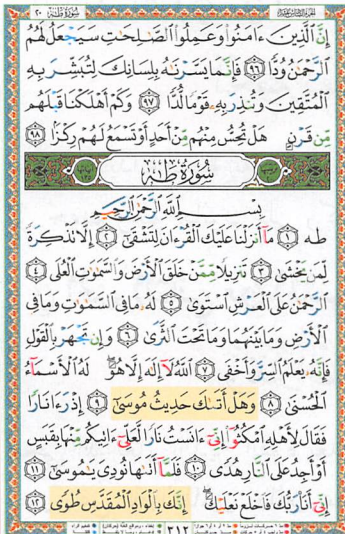 سورة طه ٢٠
إِنَّ ٱلَّذِينَ ءَامَنُوا۟ وَعَمِلُوا۟ ٱلصَّٰلِحَٰتِ سَيَجْعَلُ لَهُمُ
ٱلرَّحْمَٰنُ وُدًّا ٩٦ فَإِنَّمَا يَسَّرْنَٰهُ بِلِسَانِكَ لِتُبَشِّرَ بِهِ
ٱلْمُتَّقِينَ وَتُنذِرَ بِهِۦ قَوْمًا لُّدًّا ٩٧ وَكَمْ أَهْلَكْنَا قَبْلَهُم
مِّن قَرْنٍ هَلْ تُحِسُّ مِنْهُم مِّنْ أَحَدٍ أَوْ تَسْمَعُ لَهُمْ رِكْزًۢا ٩٨
سُورَةُ طه
بِسْمِ ٱللَّهِ ٱلرَّحْمَٰنِ ٱلرَّحِيمِ
طه ١ مَآ أَنزَلْنَا عَلَيْكَ ٱلْقُرْءَانَ لِتَشْقَىٰٓ ٢ إِلَّا تَذْكِرَةً
لِّمَن يَخْشَىٰ ٣ تَنزِيلًا مِّمَّنْ خَلَقَ ٱلْأَرْضَ وَٱلسَّمَٰوَٰتِ ٱلْعُلَى ٤
ٱلرَّحْمَٰنُ عَلَى ٱلْعَرْشِ ٱسْتَوَىٰ ٥ لَهُۥ مَا فِى ٱلسَّمَٰوَٰتِ وَمَا فِى
ٱلْأَرْضِ وَمَا بَيْنَهُمَا وَمَا تَحْتَ ٱلثَّرَىٰ ٦ وَإِن تَجْهَرْ بِٱلْقَوْلِ
فَإِنَّهُۥ يَعْلَمُ ٱلسِّرَّ وَأَخْفَى ٧ ٱللَّهُ لَآ إِلَٰهَ إِلَّا هُوَ ۖ لَهُ ٱلْأَسْمَآءُ
ٱلْحُسْنَىٰ ٨ وَهَلْ أَتَىٰكَ حَدِيثُ مُوسَىٰٓ ٩ إِذْ رَءَا نَارًا
فَقَالَ لِأَهْلِهِ ٱمْكُثُوٓا۟ إِنِّىٓ ءَانَسْتُ نَارًا لَّعَلِّىٓ ءَاتِيكُم مِّنْهَا بِقَبَسٍ
أَوْ أَجِدُ عَلَى ٱلنَّارِ هُدًى ١٠ فَلَمَّآ أَتَىٰهَا نُودِىَ يَٰمُوسَىٰٓ ١١
إِنِّىٓ أَنَا۠ رَبُّكَ فَٱخْلَعْ نَعْلَيْكَ ۖ إِنَّكَ بِٱلْوَادِ ٱلْمُقَدَّسِ طُوًى ١٢
٣١٢